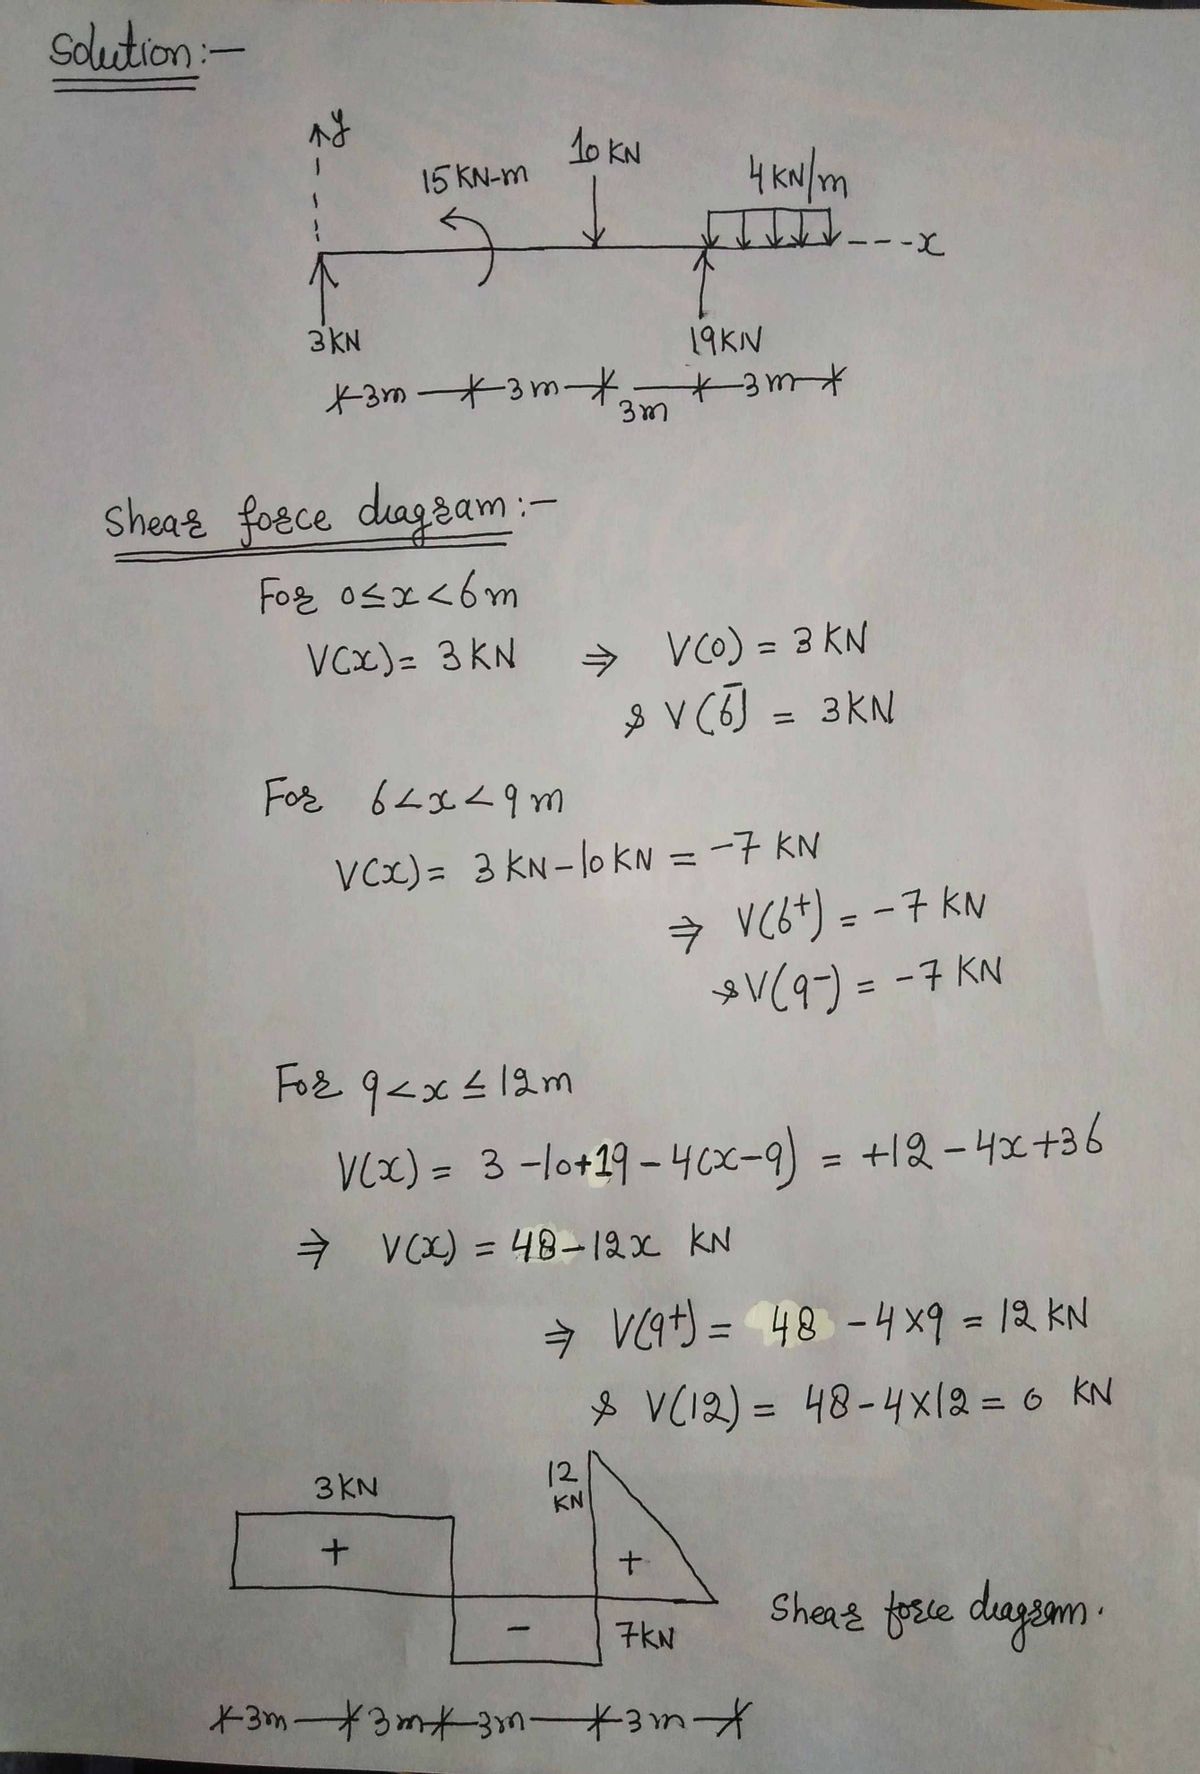 Solution:-
y
10 KN
15 KN-m
4 KN/m
---x
3 KN
19 KN
3m 3m 3m 3m
Shear force diagram:-
For 0≤x<6m
V(x)= 3 KN ⇒ V(0) = 3 KN
& V(6⁻) = 3 KN
For 6<x<9m
V(x)= 3 KN-10 KN = -7 KN
⇒ V(6+) = -7 KN
& V(9-) = -7 KN
For 9<x≤12m
V(x) = 3-10+19-4(x-9) = +12-4x+36
⇒ V(x) = 48-12x KN
⇒ V(9+) = 48 -4×9 = 12 KN
& V(12) = 48-4×12 = 0 KN
3 KN
12
KN
+
+
-
7 KN
Shear force diagram.
3m 3m 3m 3m